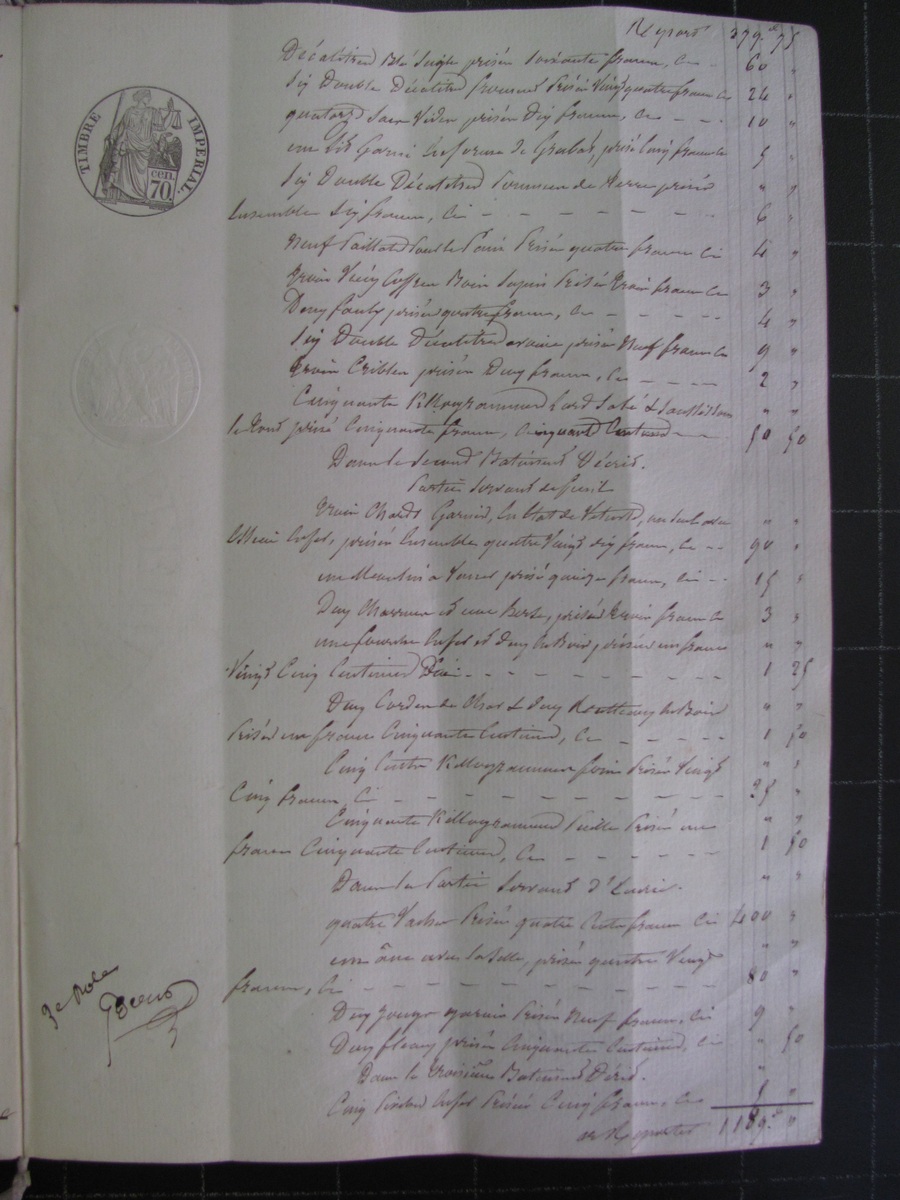 Report 379.f 75
Décalitres Blé Seigle prisés Soixante francs, Ci - 60 "
Six Double Décalitres froment Prisés Vingt quatre francs Ci 24 "
quatorze Sacs Vides prisés Dix francs, Ci - - - 10 "
une lit Garni en forme de Grabat, prisé Cinq francs Ci 5 "
Six Double Décalitres Pommes de Terre prisés " "
Ensemble Six francs, Ci - - - - - - - - 6 "
Neuf Prisés quatre francs Ci 4 "
trois Vieux Coffres Bois Sapin Prisés trois francs Ci 3 "
Deux prisés quatre francs, Ci - - - - - 4 "
Six Double Décalitres avoine prisés Neuf francs Ci 9 "
trois Cribles prisés Deux francs, Ci - - - - 2 "
Cinquante Killogrammes Lard Salé & Saucissons " "
le tout prisé Cinquante francs, Cinquante Centimes - 50 50
Dans le Second Batiment Décrit.
Partie Servant de fenil
trois Chards Garnis, En Etat de un seul avec " "
Essieu en fer, prisés Ensemble quatre Vingt dix francs, Ci - - 90 "
une à Vanner prisé quinze francs, Ci - - 15 "
Deux Charrues et une herse, prisés trois francs Ci 3 "
une fourche en fer et Deux en Bois, prisées un franc " "
Vingt Cinq Centimes Ci - - - - - - - - - 1 25
Deux Cordes de Char & Deux Ratteaux en Bois " "
Prisés un franc Cinquante Centimes, Ci - - - - - 1 50
Cinq Cents Killogrammes foin Prisés Vingt " "
Cinq francs Ci - - - - - - - - - - - 25 "
Cinquante Killogrammes Paille Prisés un " "
franc Cinquante Centimes, Ci - - - - - - 1 50
Dans la Partie Servant d'Ecurie. " "
quatre Vaches Prisées quatre Cents francs Ci 400 "
une âne avec la Selle, prisés quatre Vingt " "
francs, Ci - - - - - - - - - - - - 80 "
Deux Jougs garnis Prisés Neuf francs, Ci 9 "
Deux fleaux prisés Cinquante Centimes, Ci " 50
Dans le troisième Batiment Décrit. "
Cinq en fer Prisés Cinq francs, Ci 5 "
à Reporter 1189.f "
TIMBRE IMPERIAL.
CEN. 70.
3e Role